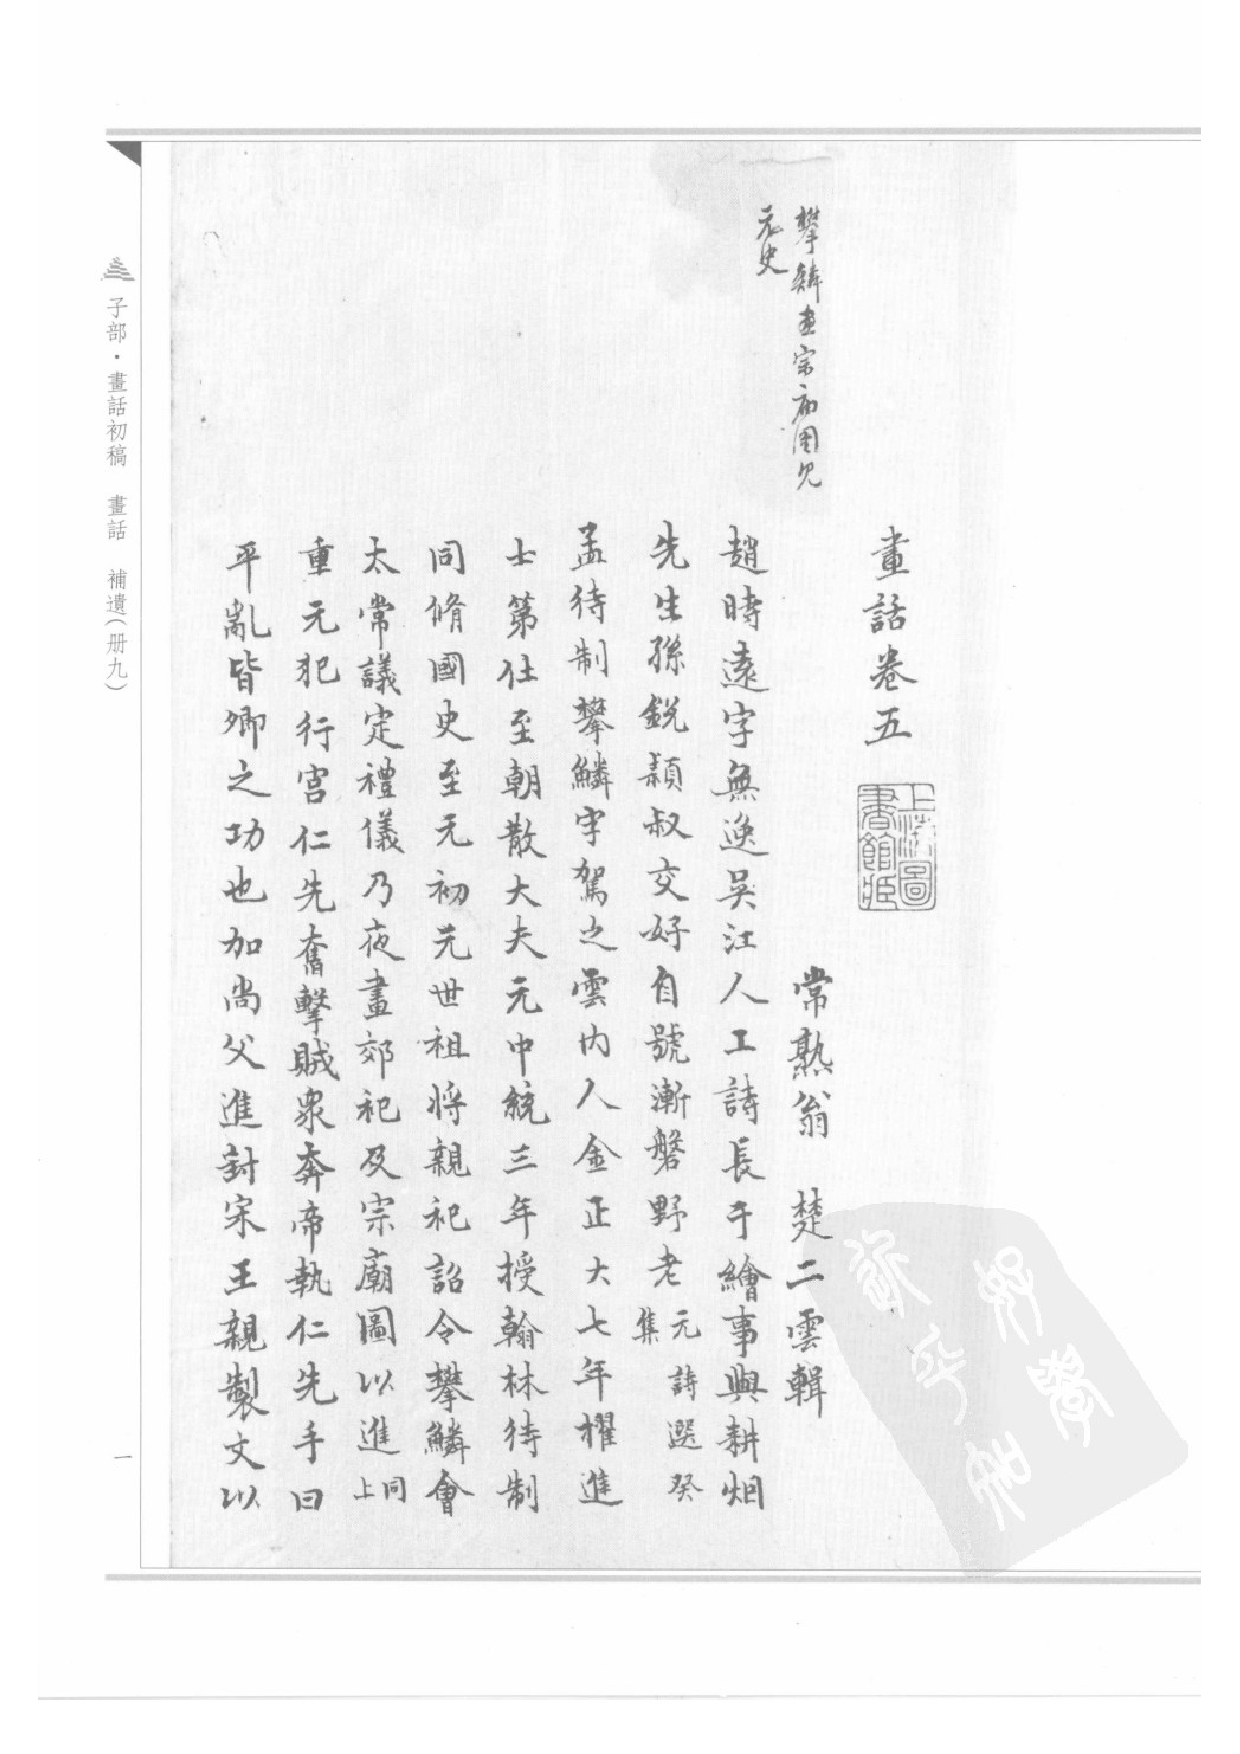 畫話卷五
上海圖書館藏
常熟翁　楚二雲輯
攀鱗畫宗廟圖見
元史
趙時遠字無逸吳江人工詩長于繪事與耕烟
先生孫銳頴叔交好自號漸磐野老元詩選癸集
孟待制攀鱗字駕之雲内人金正大七年擢進
士第仕至朝散大夫元中統三年授翰林待制
同脩國史至元初元世祖將親祀詔令攀鱗會
太常議定禮儀乃夜畫郊祀及宗廟圖以進同上
重元犯行宫仁先奮擊賊衆奔帝執仁先手曰
平亂皆卿之功也加尚父進封宋王親製文以
子部·畫話初稿　畫話　補遺（册九）
一